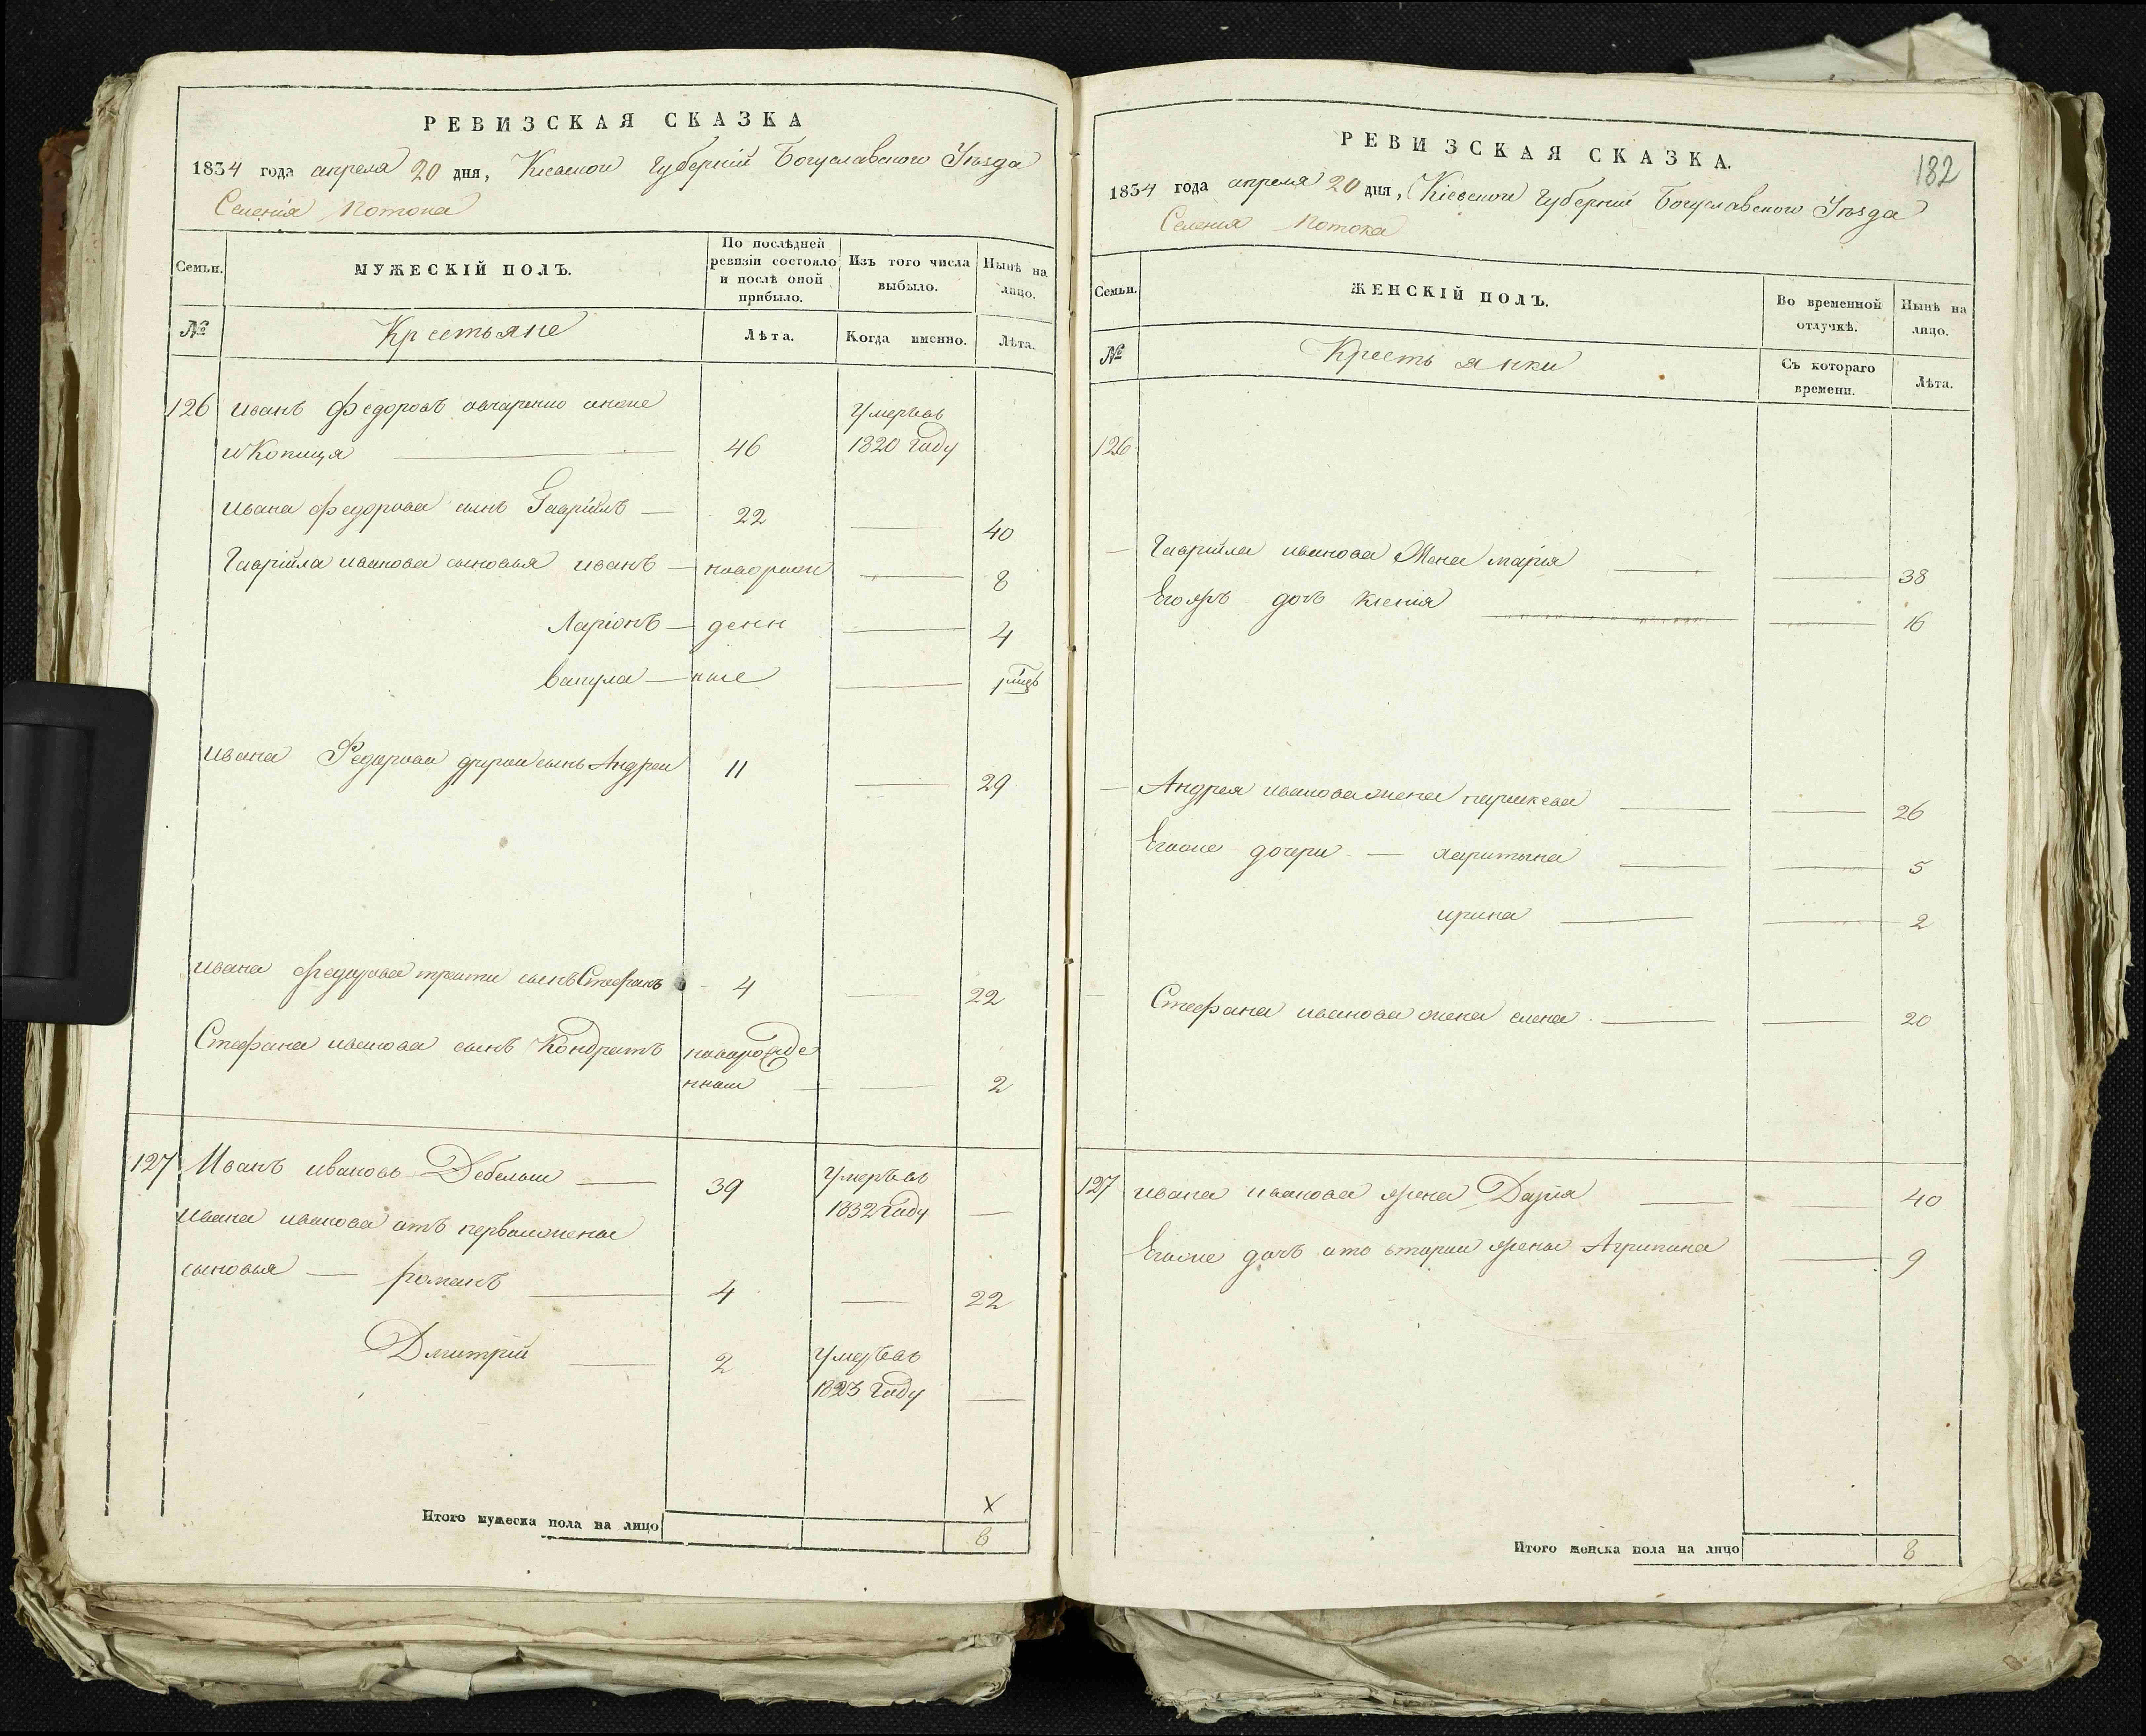 РЕВИЗСКАЯ СКАЗКА
1834 года апреля 20 дня, Киевской губерній Богуславского Уѣзда
Селенія Потока
Семьи.
МУЖЕСКІЙ ПОЛЪ.
По послѣдней ревизіи состояло и послѣ оной прибыло.
Изъ того числа выбыло.
Нынѣ на лицо.
№
Крестьяне
Лѣта.
Когда именно.
Лѣта.
126 иванъ федоровъ овчаренко
46 Умеръвъ 1820 году
ивана федорова сынъ Гаврійлъ — 22 — 40
Гаврійла иванова сыновья иванъ — новорож — 8
Ларіонъ — денн — 4
вакула — ные — 1
ивана Федорова другой сынъ Андрей 11 — 29
ивана федорова трети сынъ Стефанъ 4 — 22
Стефана иванова сынъ Кондратъ новорожде
нный — 2
127 Иванъ ивановъ Дебелый — 39 Умеръвъ
1832 году —
ивана иванова отъ первой жены
сыновья — романъ — 4 — 22
Дмитрій — 2 Умеръвъ
1823 году —
х
Итого мужеска пола на лицо 8
РЕВИЗСКАЯ СКАЗКА.
182
1834 года апреля 20 дня, Кіевской губерній Богуславского Уѣзда
Селенія Потока
Семьи.
ЖЕНСКІЙ ПОЛЪ.
Во временной отлучкѣ.
Нынѣ на лицо.
№
Крестьянки
Съ котораго времени.
Лѣта.
126
Гаврійла иванова Жена марія — 38
Егожъ дочъ ксенія — 16
Андрея иванова жена параскева — 26
Егоже дочери — харитына — 5
ирина — 2
Стефана иванова жена елена — 20
127 ивана иванова жена Дарія — 40
Егоже дочъ ото второи жены Агрипина — 9
Итого женска пола на лицо 8